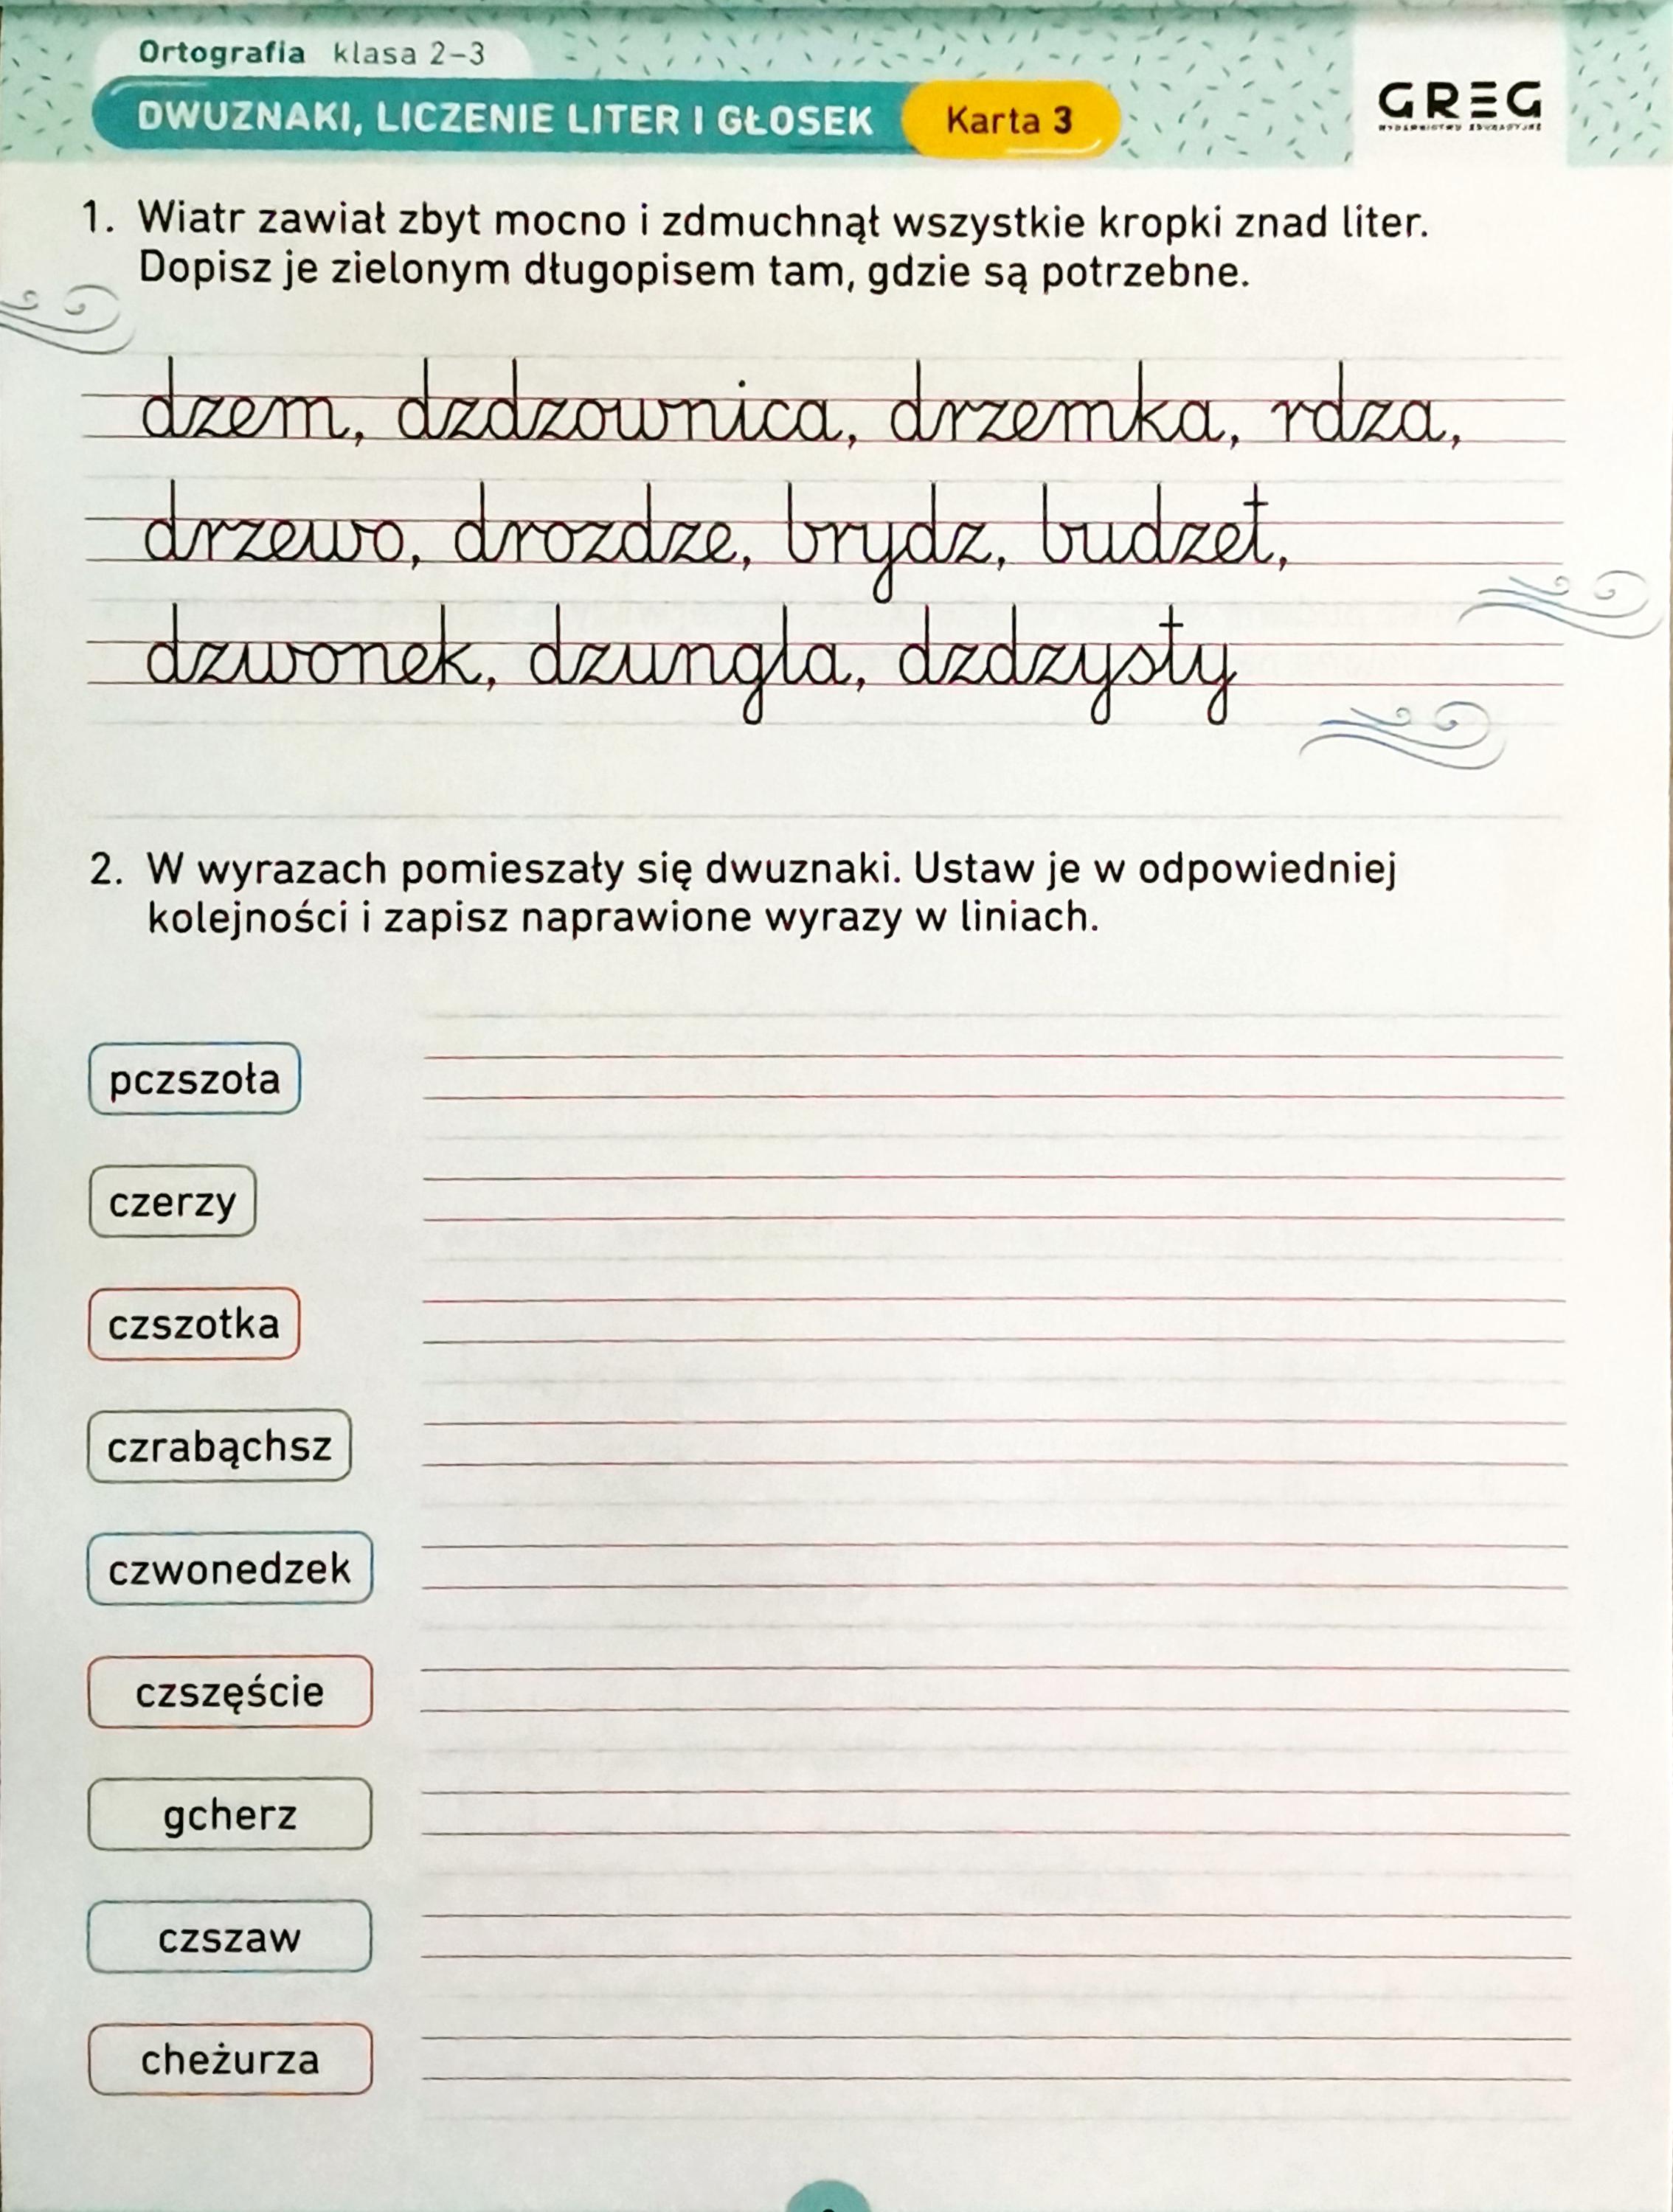 Ortografia klasa 2-3
DWUZNAKI, LICZENIE LITER I GŁOSEK Karta 3
GREG
1. Wiatr zawiał zbyt mocno i zdmuchnął wszystkie kropki znad liter.
Dopisz je zielonym długopisem tam, gdzie są potrzebne.
dzem, dzdzownica, drzemka, rdza,
drzewo, drozdze, brydz, budzet,
dzwonek, dzungla, dzdzysty
2. W wyrazach pomieszały się dwuznaki. Ustaw je w odpowiedniej
kolejności i zapisz naprawione wyrazy w liniach.
pczszoła
czerzy
czszotka
czrabąchsz
czwonedzek
czszęście
gcherz
czszaw
cheżurza